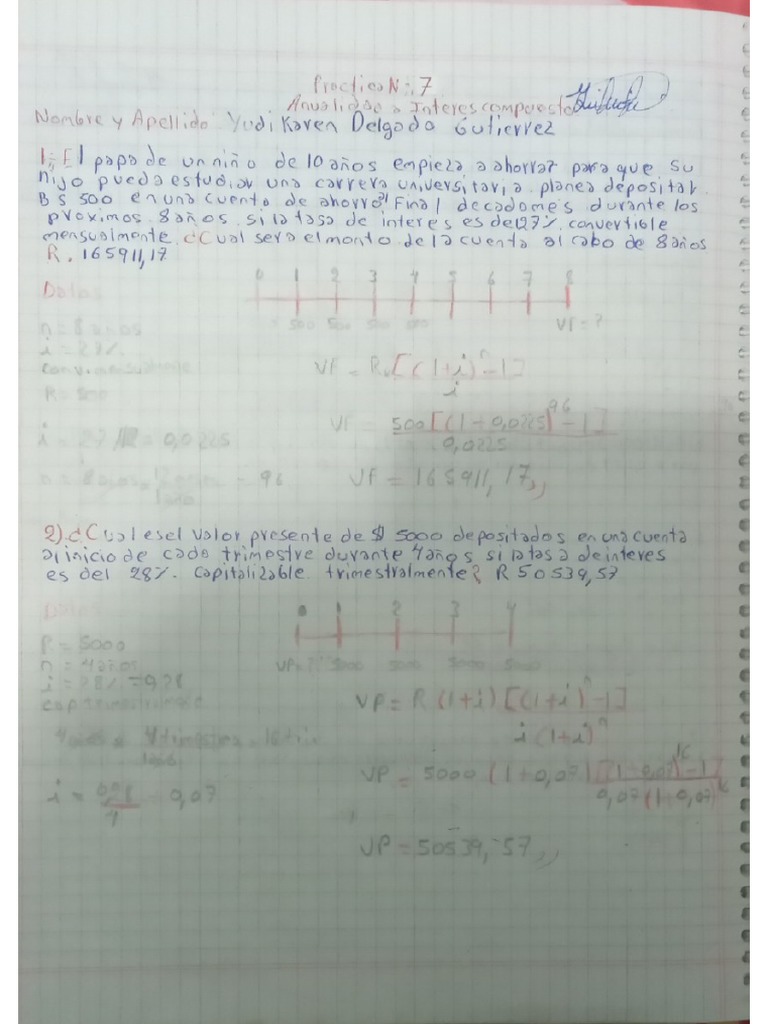 Practica N: 7
Anualidad a Interes compuesto
Nombre y Apellido: Yudi Karen Delgado Gutierrez
1; El papa de un niño de 10 años empieza a ahorrar para que su
hijo pueda estudiar una carrera universitaria. planea depositar
Bs 500 en una cuenta de ahorro al Final de cada mes durante los
proximos 8 años, si la tasa de interes es del 27% convertible
mensualmente. ¿Cual sera el monto de la cuenta al cabo de 8 años
R. 165911,17
Datos
0 1 2 3 4 5 6 7 8
500 500 500 500 VF = ?
n = 8 años
i = 27%
R = 500
VF = R. [(1+i)^n - 1] / i
i = 27/12 = 0,0225
VF = 500[(1+0,0225)^96 - 1] / 0,0225
= 96
VF = 165911,17,,
2) ¿Cual es el valor presente de $ 5000 depositados en una cuenta
al inicio de cada trimestre durante 4 años si la tasa de interes
es del 28% capitalizable trimestralmente? R 50539,57
Datos
0 1 2 3 4
VP = ? 5000 5000 5000 5000
P = 5000
n = 4 años
i = 28% = 0,28
cap trimestralmente
VP = R (1+i) [(1+i)^n - 1] / i (1+i)^n
i = 0,28/4 = 0,07
VP = 5000 (1+0,07) [(1+0,07)^16 - 1] / 0,07 (1+0,07)^16
VP = 50539,57,,